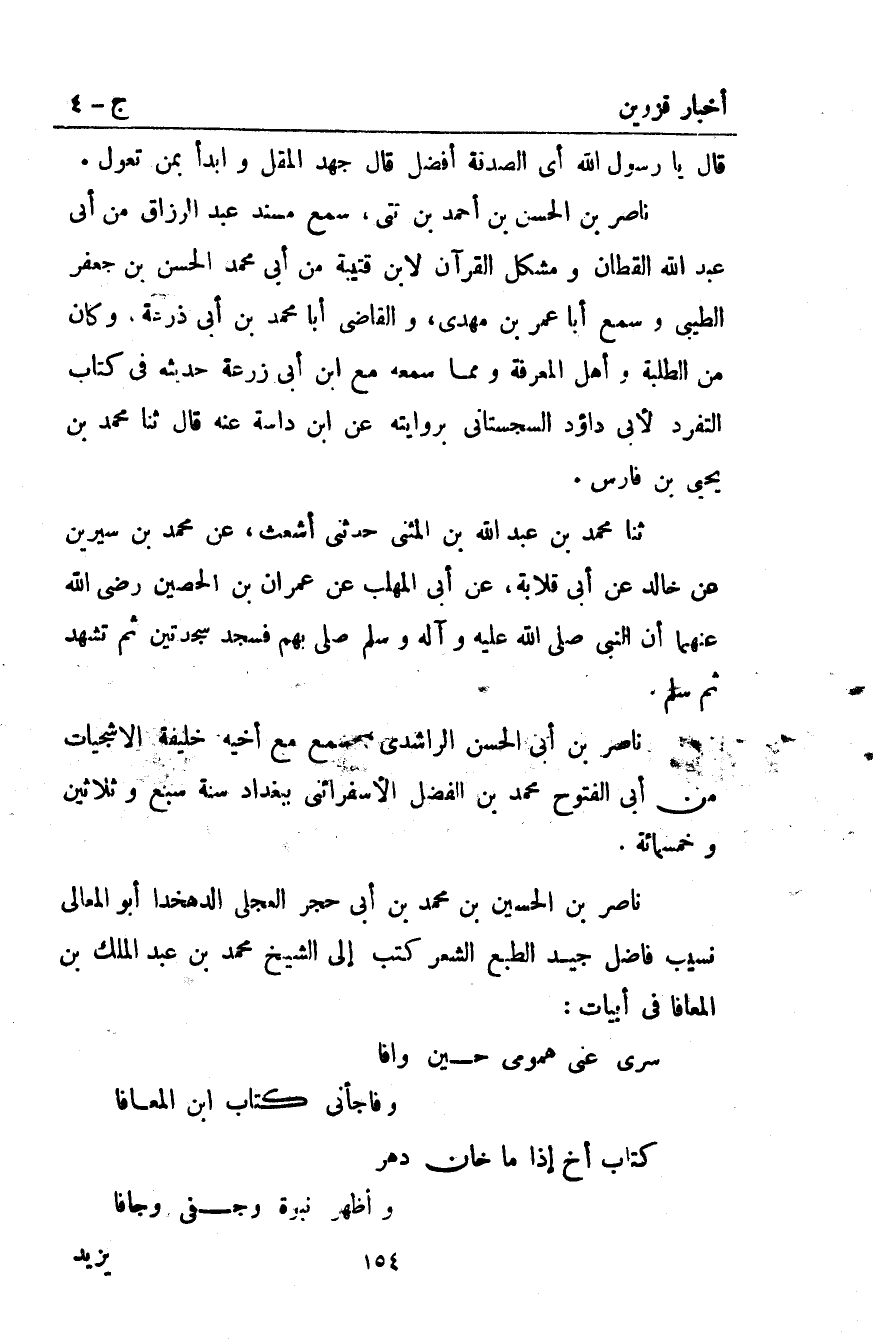 أخبار قزوين ج – ٤
قال يا رسول الله أى الصدقة أفضل قال جهد المقل و ابدأ بمن تعول .
ناصر بن الحسن بن أحمد بن تتى، سمع مسند عبد الرزاق من أبى
عبد الله القطان و مشكل القرآن لابن قتيبة من أبى محمد الحسن بن جعفر
الطيبى و سمع أبا عمر بن مهدى، و القاضى أبا محمد بن أبى ذرعة . وكان
من الطلبة و أهل المعرفة و مما سمعه مع ابن أبى زرعة حديثه فى كتاب
التفرد لأبى داؤد السجستانى بروايته عن ابن داسة عنه قال ثنا محمد بن
يحيى بن فارس .
ثنا محمد بن عبد الله بن المثنى حدثنى أشعث، عن محمد بن سيرين
عن خالد عن أبى قلابة، عن أبى المهلب عن عمران بن الحصين رضى الله
عنهما أن النبى صلى الله عليه و آله و سلم صلى بهم فسجد سجدتين ثم تشهد
ثم سلم .
ناصر بن أبى الحسن الراشدى سمع مع أخيه خليفة الاشجيات
من أبى الفتوح محمد بن الفضل الأسفرائنى ببغداد سنة سبع و ثلاثين
و خمسمائة .
ناصر بن الحسين بن محمد بن أبى حجر العجلى الدهخدا أبو المعالى
نسيب فاضل جيد الطبع الشعر كتب إلى الشيخ محمد بن عبد الملك بن
المعافا فى أبيات :
سرى عنى همومى حين وافا
و فاجأنى كتاب ابن المعافا
كتاب أخ إذا ما خان دهر
و أظهر نبوة وجفى وجافا
١٥٤ يزيد